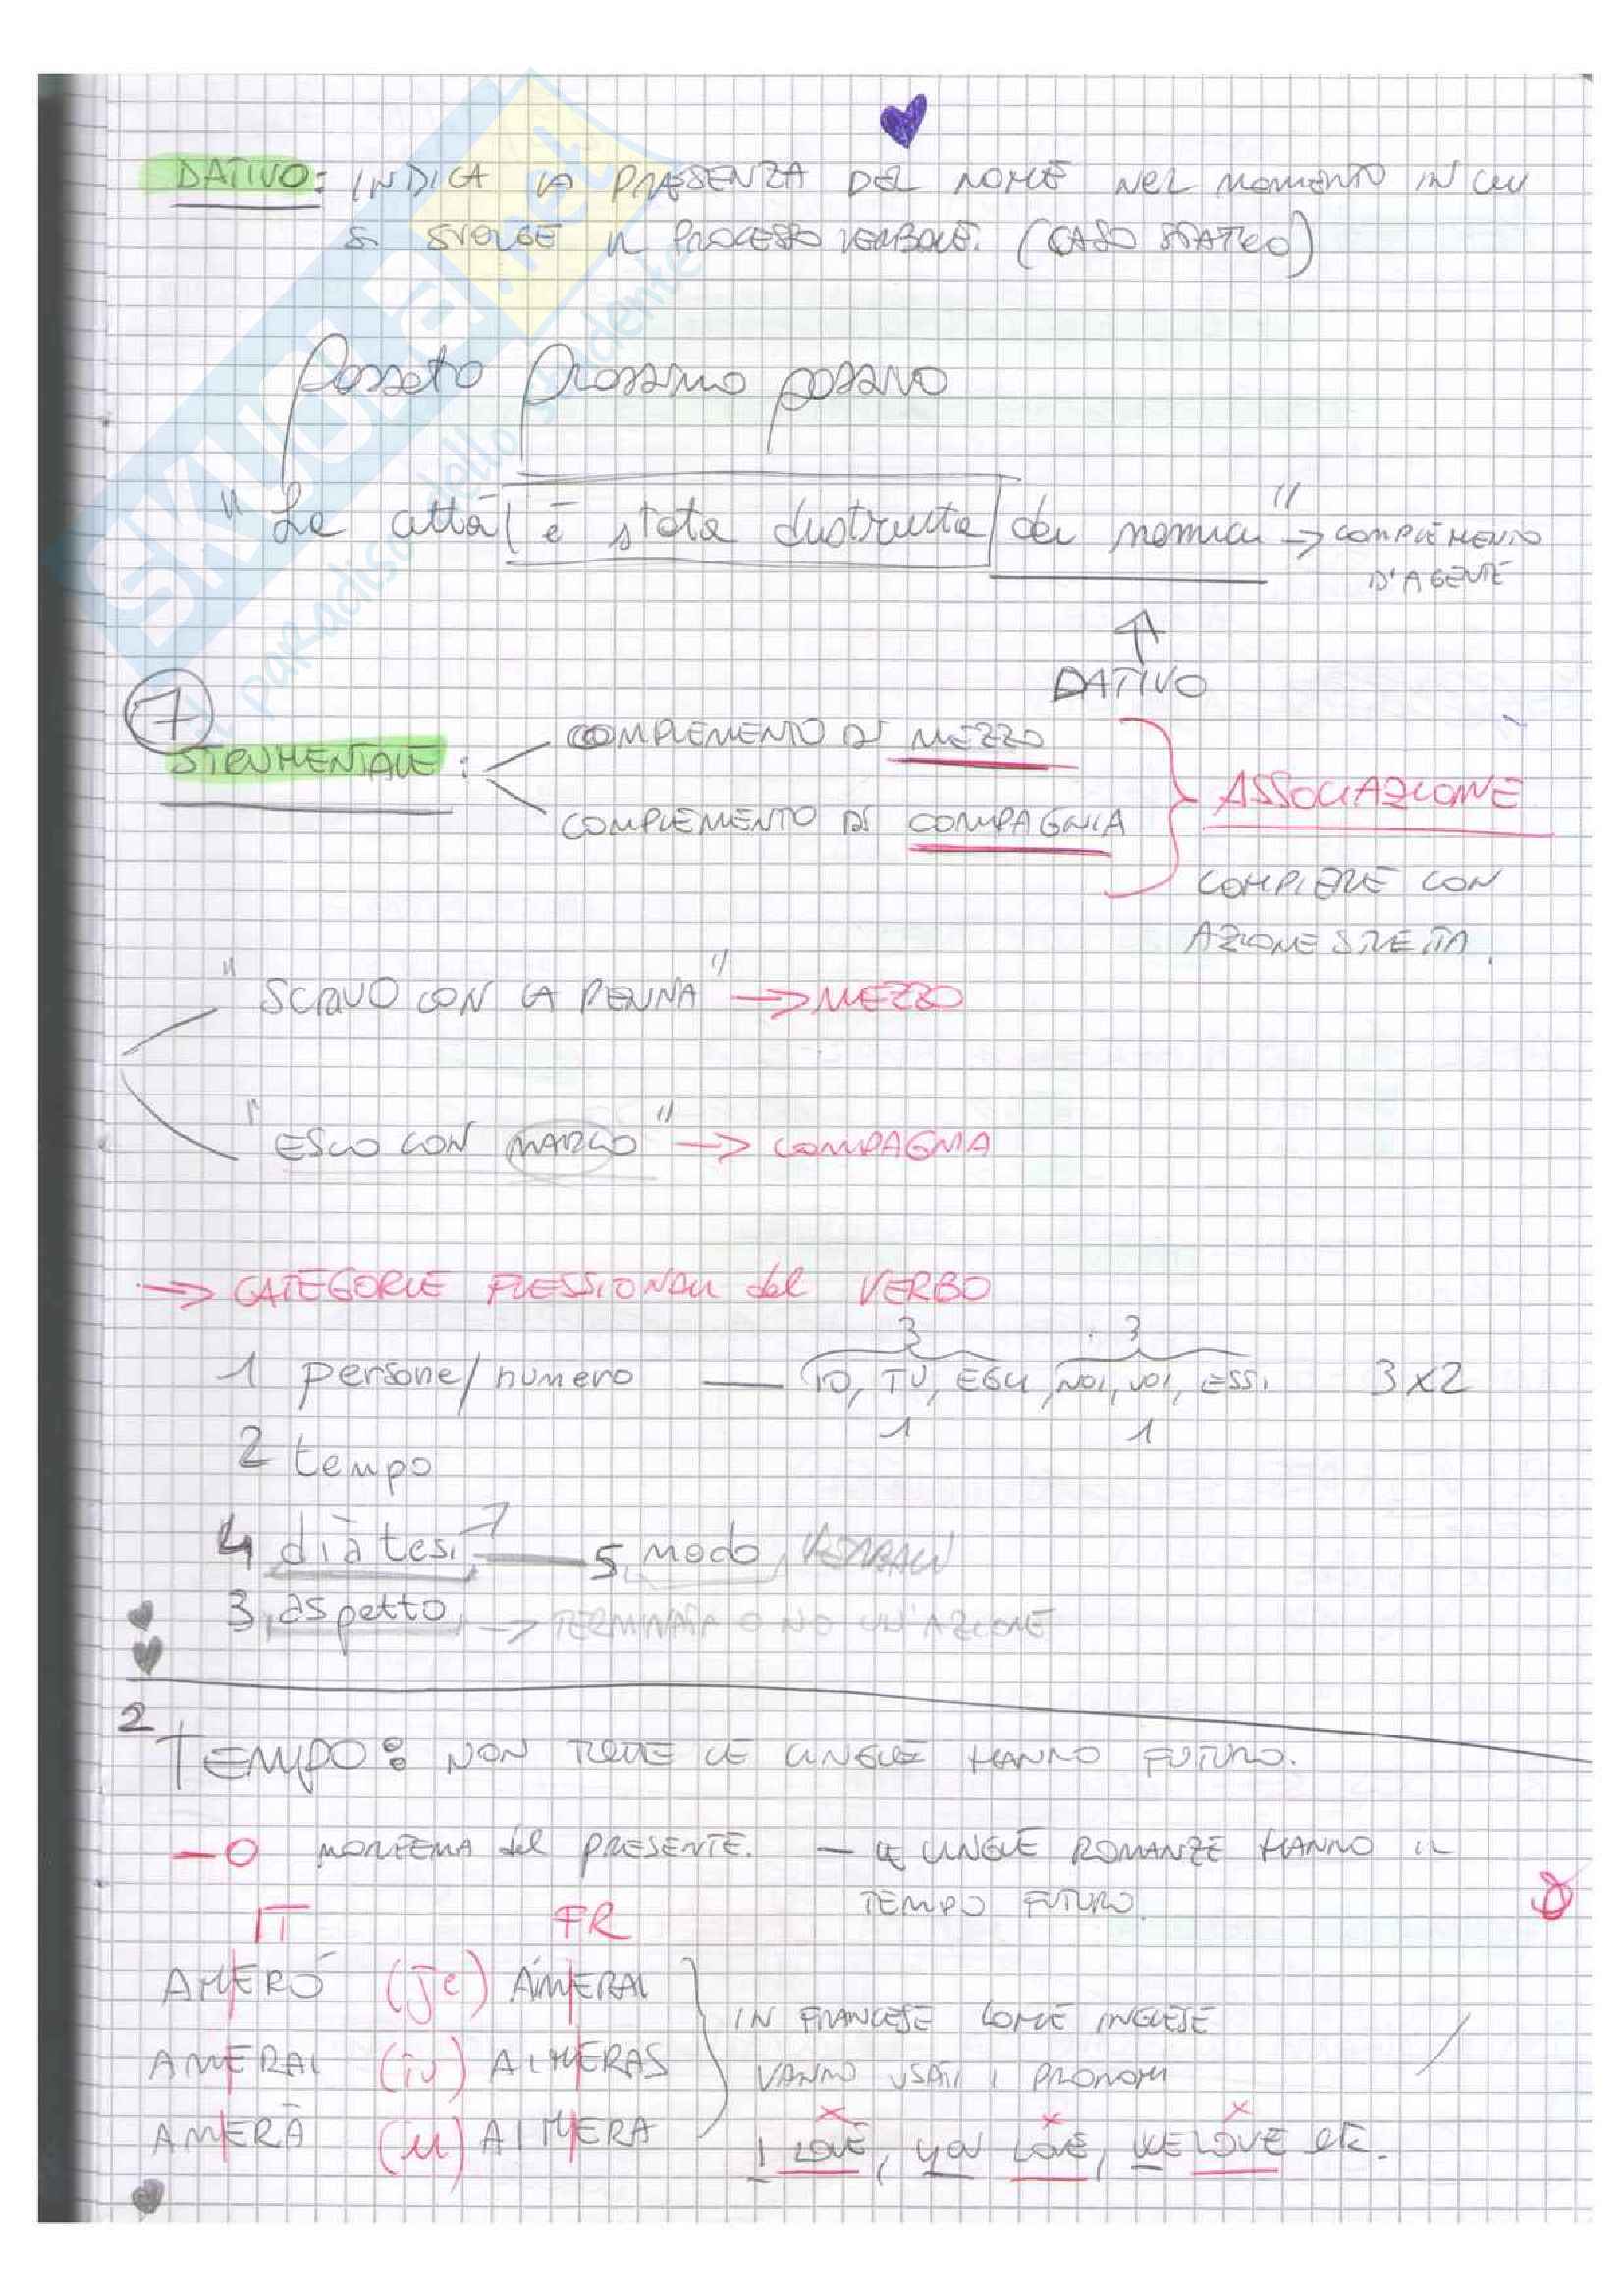 DATIVO: INDICA LA PRESENZA DEL NOME NEL MOMENTO IN CUI
SI SVOLGE IL PROCESSO VERBALE. (CASO STATICO)
Passato prossimo passivo
"La città è stata distrutta dai nemici" → COMPLEMENTO
D'AGENTE
DATIVO
7
STRUMENTALE:
COMPLEMENTO DI MEZZO
COMPLEMENTO DI COMPAGNIA
ASSOCIAZIONE
COMPIERE CON
AZIONE STRETTA.
"SCRIVO CON LA PENNA" → MEZZO
"ESCO CON MARCO" → COMPAGNIA
→ CATEGORIE FLESSIONALI del VERBO
3 3
1 persone/numero — IO, TU, EGLI, NOI, VOI, ESSI 3x2
1 1
2 tempo
4 diàtesi — 5 modo VERBALI
3 aspetto → TERMINATA O NO UN'AZIONE
2
TEMPO: NON TUTTE LE LINGUE HANNO FUTURO.
-O MORFEMA del PRESENTE. - LE LINGUE ROMANZE HANNO IL
TEMPO FUTURO.
IT FR
AMERÒ (je) AIMERAI
AMERAI (tu) AIMERAS
AMERÀ (il) AIMERA
IN FRANCESE COME INGLESE
VANNO USATI I PRONOMI
I LOVE, YOU LOVE, WE LOVE etc.
SKUOLA.net
il paradiso dello studente